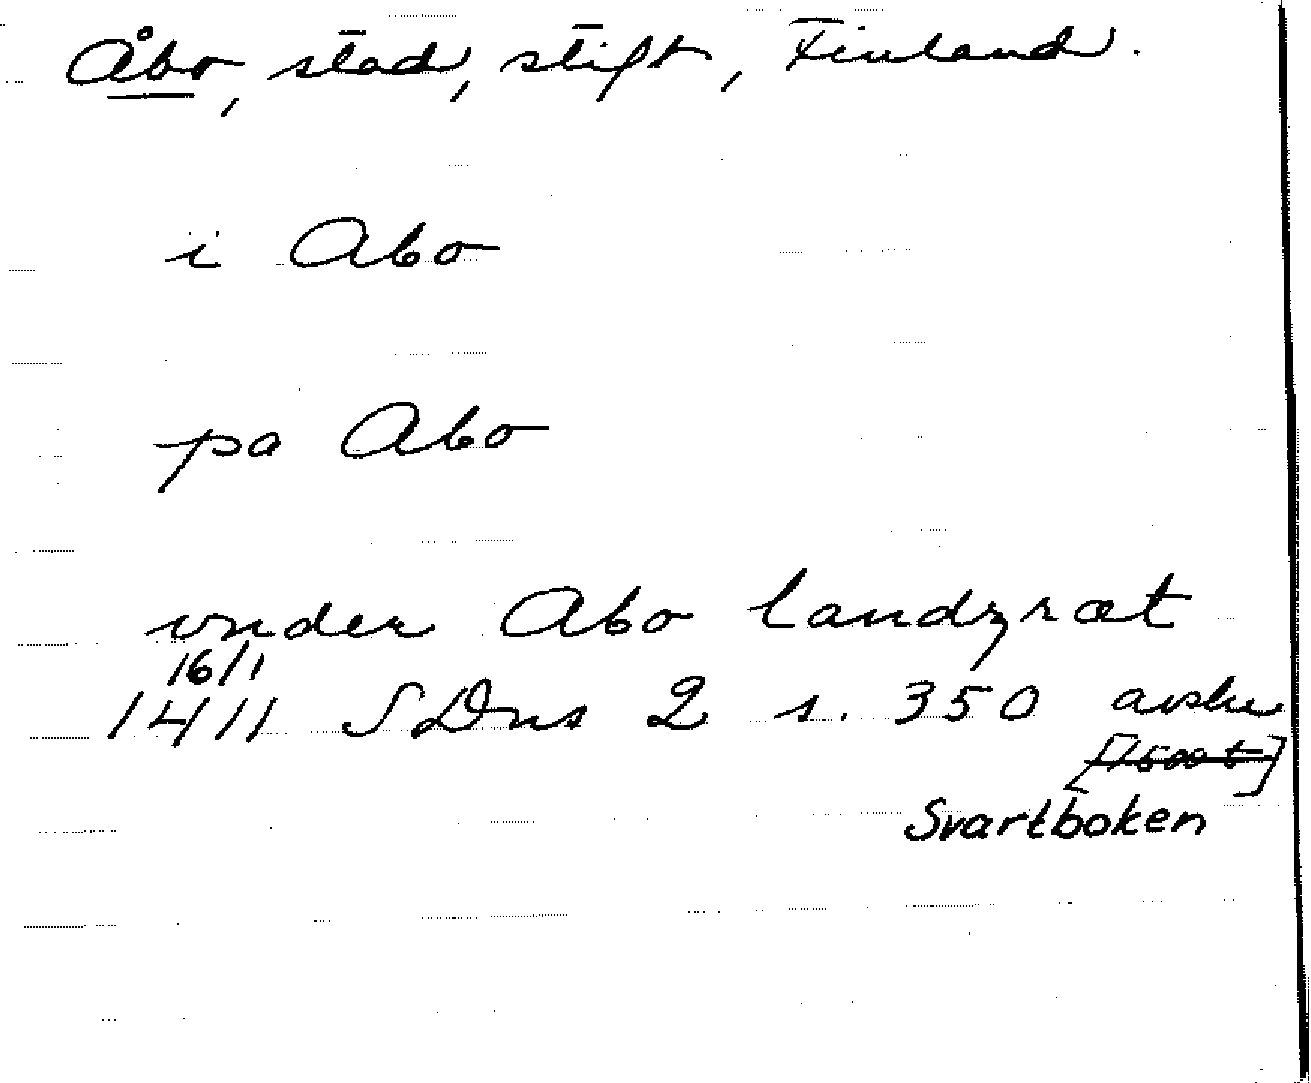 Åbo, stad, stift, Finland.
i Abo
pa Abo
vnder Abo landzræt
16/1
1411 SDns 2 s. 350 avskr
[1500 t]
Svartboken